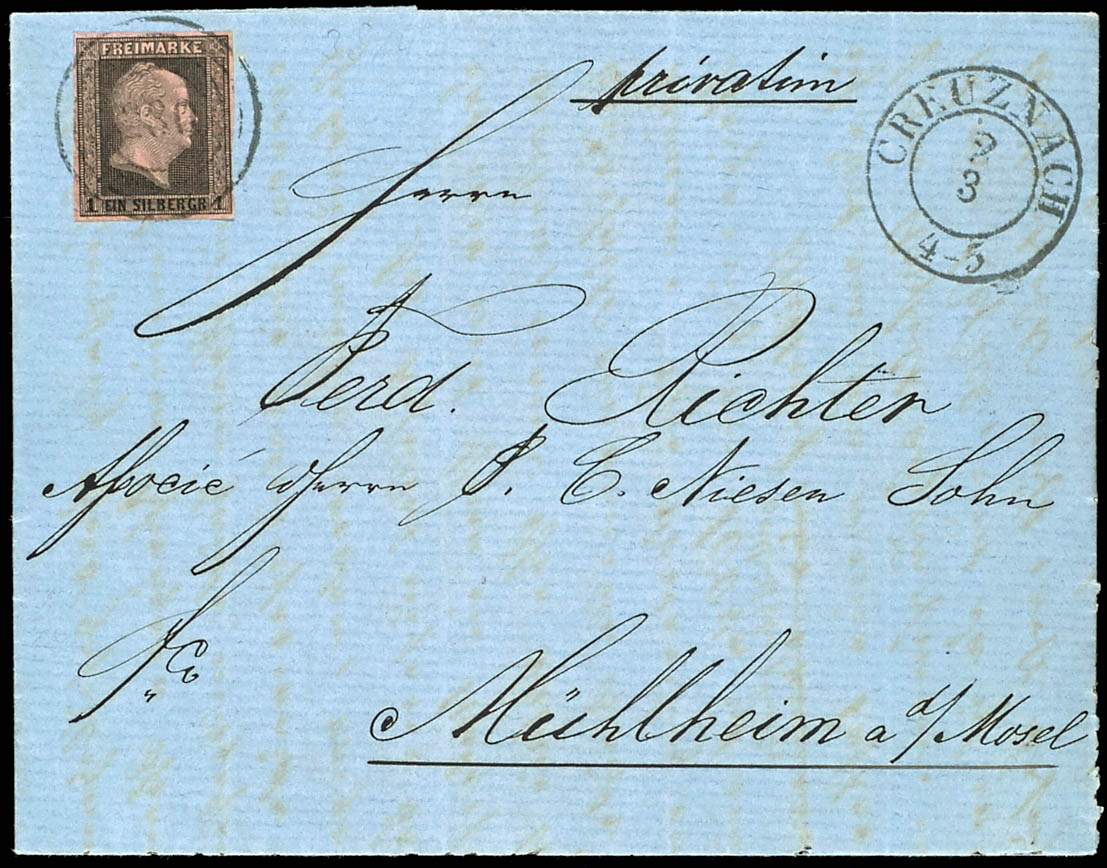 FREIMARKE
1 EIN SILBERGR 1
privatim
CREUZNACH
9
3
4-5
Herrn
Ferd. Richter
Associé d Herrn P. C. Niesen Sohn
Mühlheim a d/ Mosel